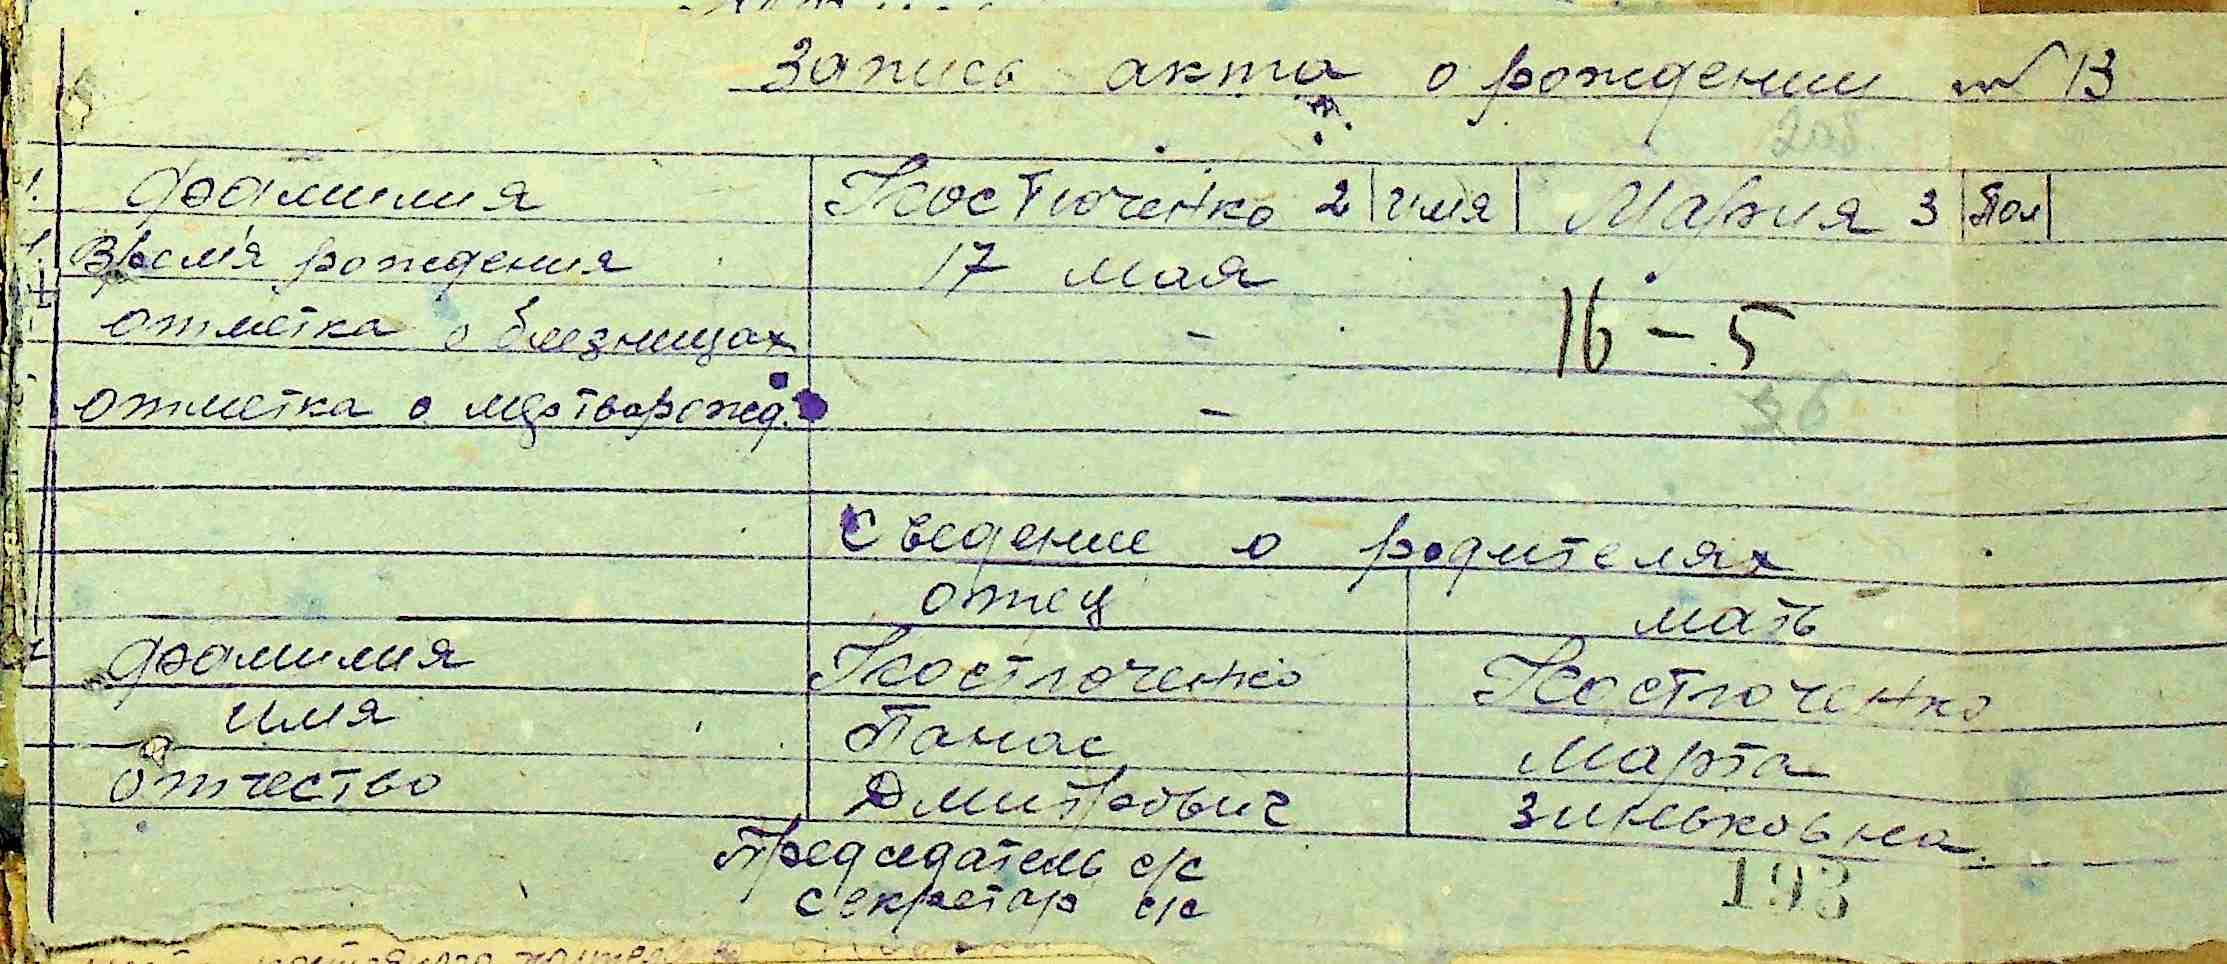 Запись акта о рождении № 13
208
1. фамилия Костюченко 2 имя Мария 3 Пол
Время рождения 17 мая
отметка о близницах - 16-5
отметка о мертворожд. -
Сведение о родителях
отец мать
фамилия Костюченко Костюченко
имя Панас Марта
отчество Дмитрович Зиньковна
Председатель с/с
секретар с/с
193